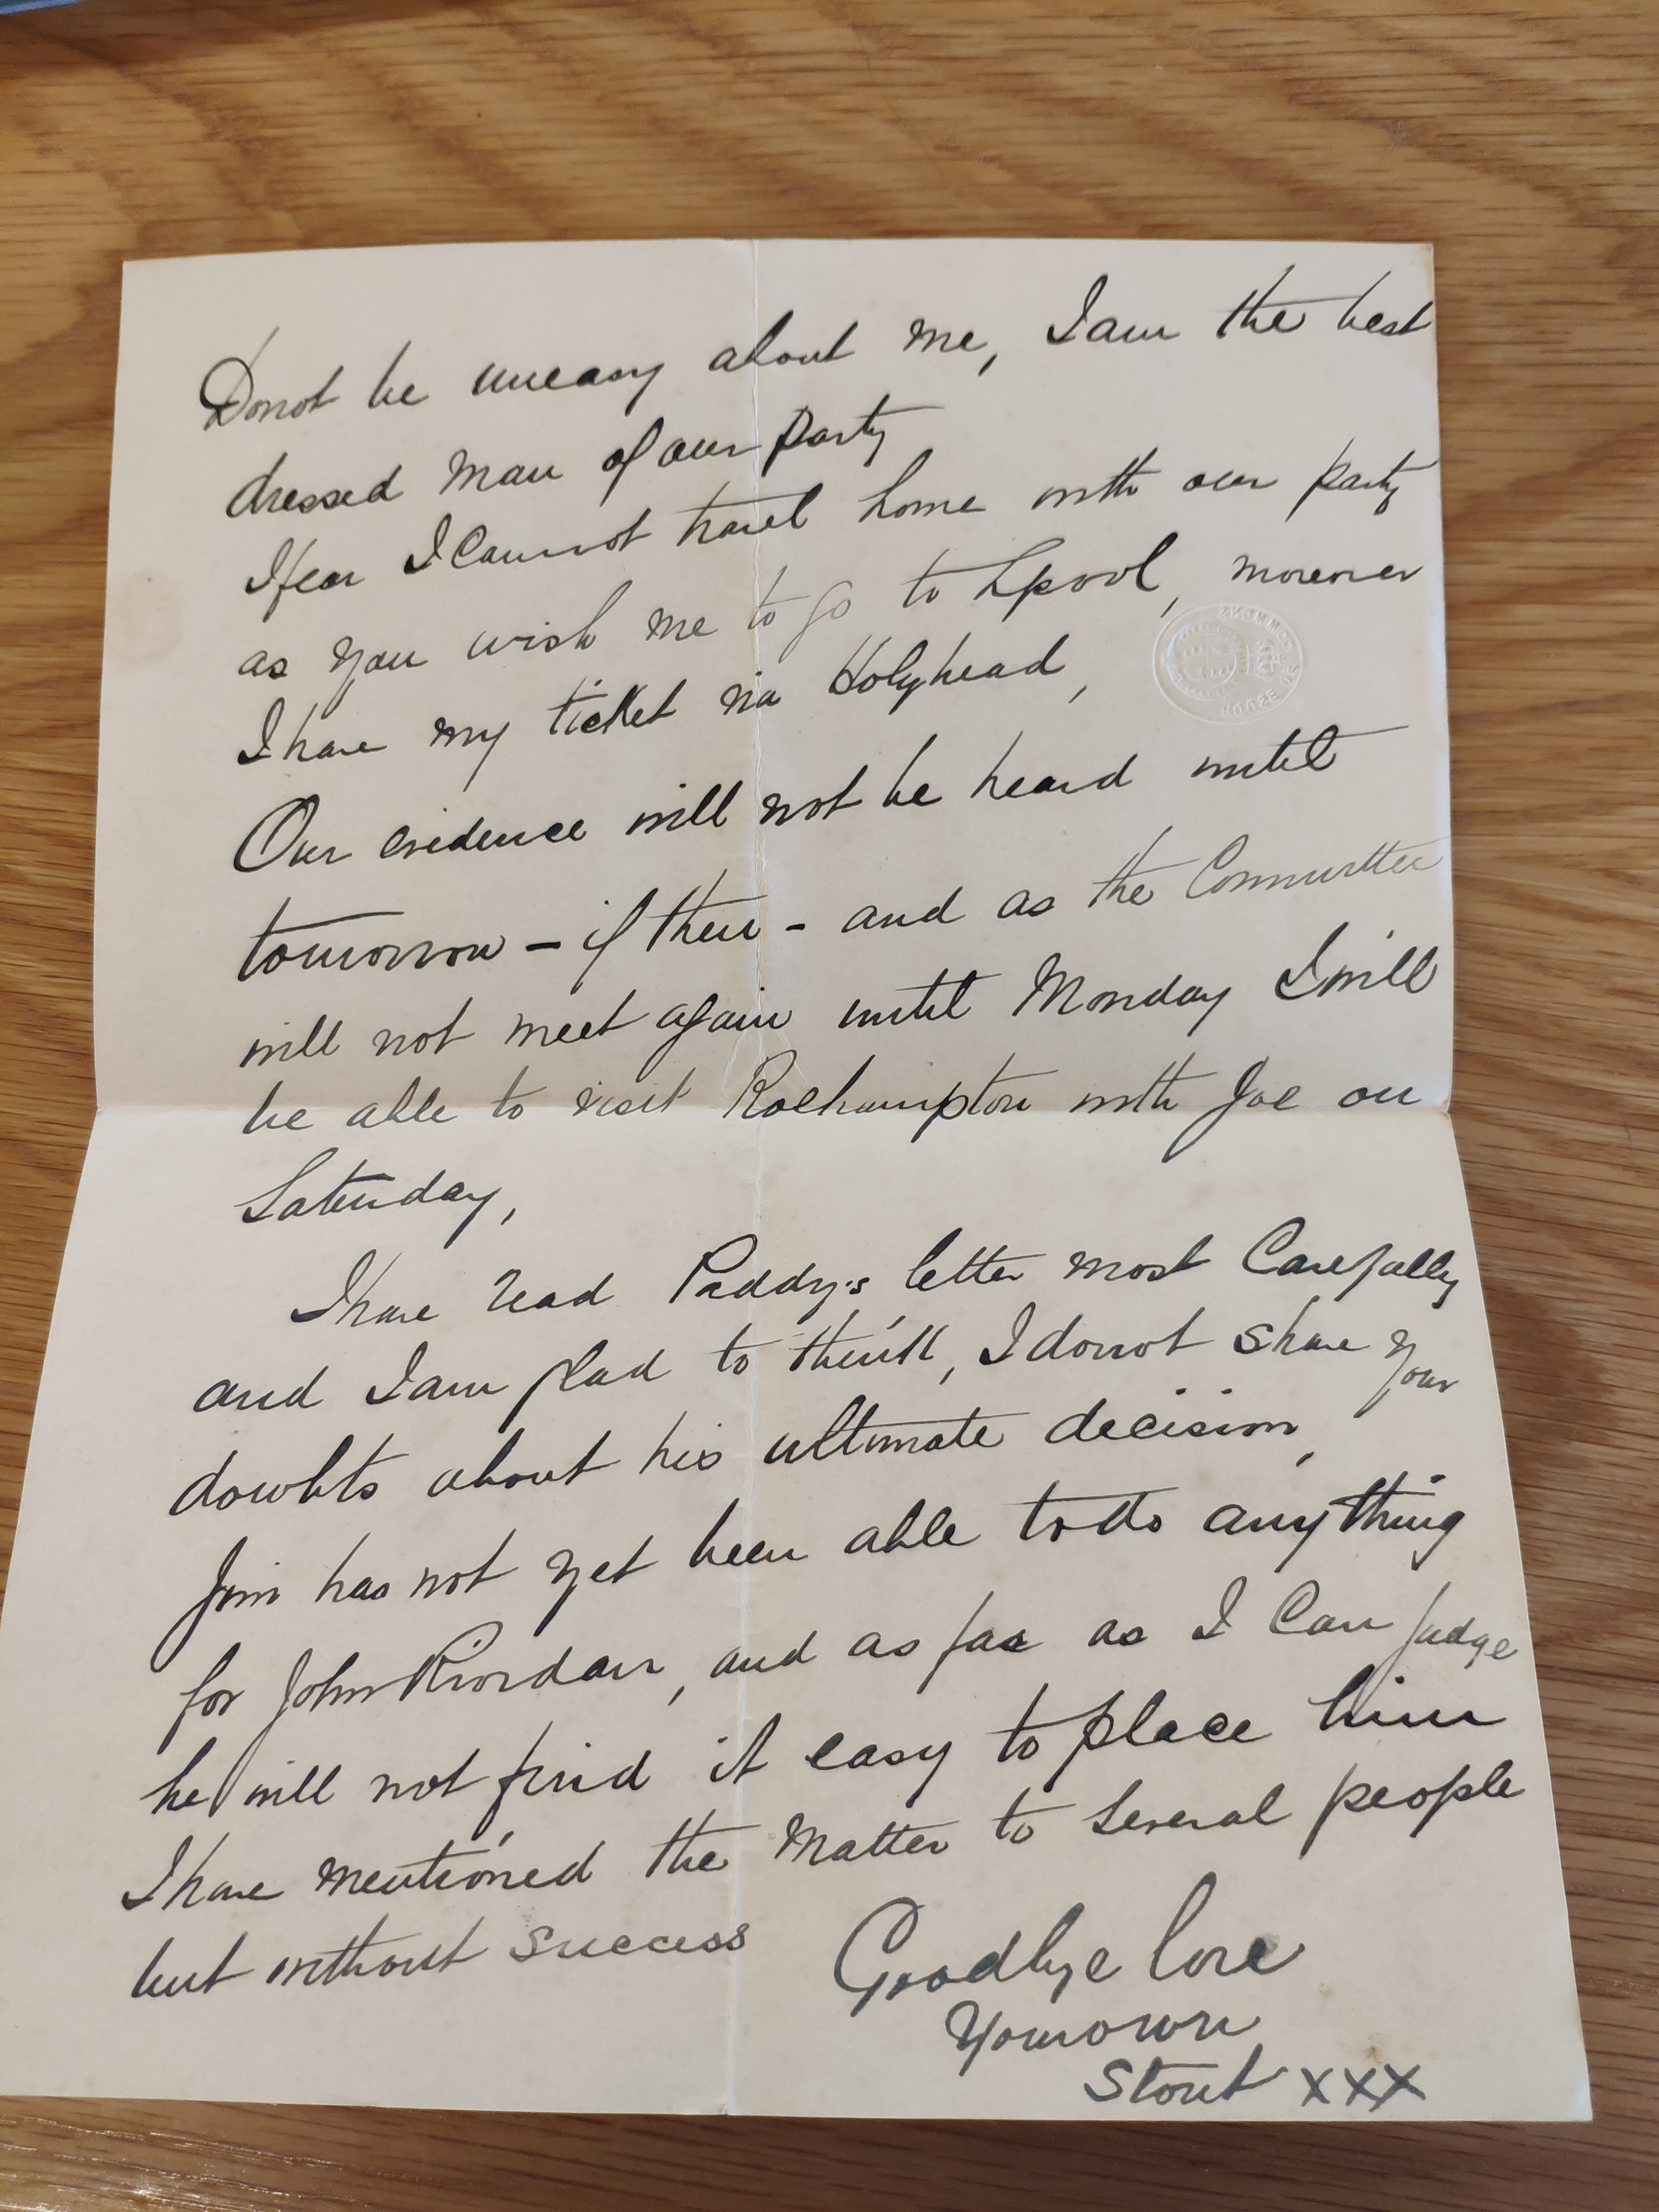 Do not be uneasy about me, I am the best
dressed man of our party
I fear I cannot travel home with our party
as you wish me to go to Lpool, moreover
I have my ticket via Holyhead,
HOUSE OF COMMONS
Our evidence will not be heard until
tomorrow – if then – and as the Committee
will not meet again until Monday I will
be able to visit Roehampton with Joe on
Saturday,
I have read Paddy's letter most Carefully
and I am glad to think, I do not share your
doubts about his ultimate decision,
Jim has not yet been able to do anything
for John Riordan, and as far as I Can judge
he will not find it easy to place him
I have mentioned the matter to several people
but without success
Goodbye love
Your own
Stout xxx